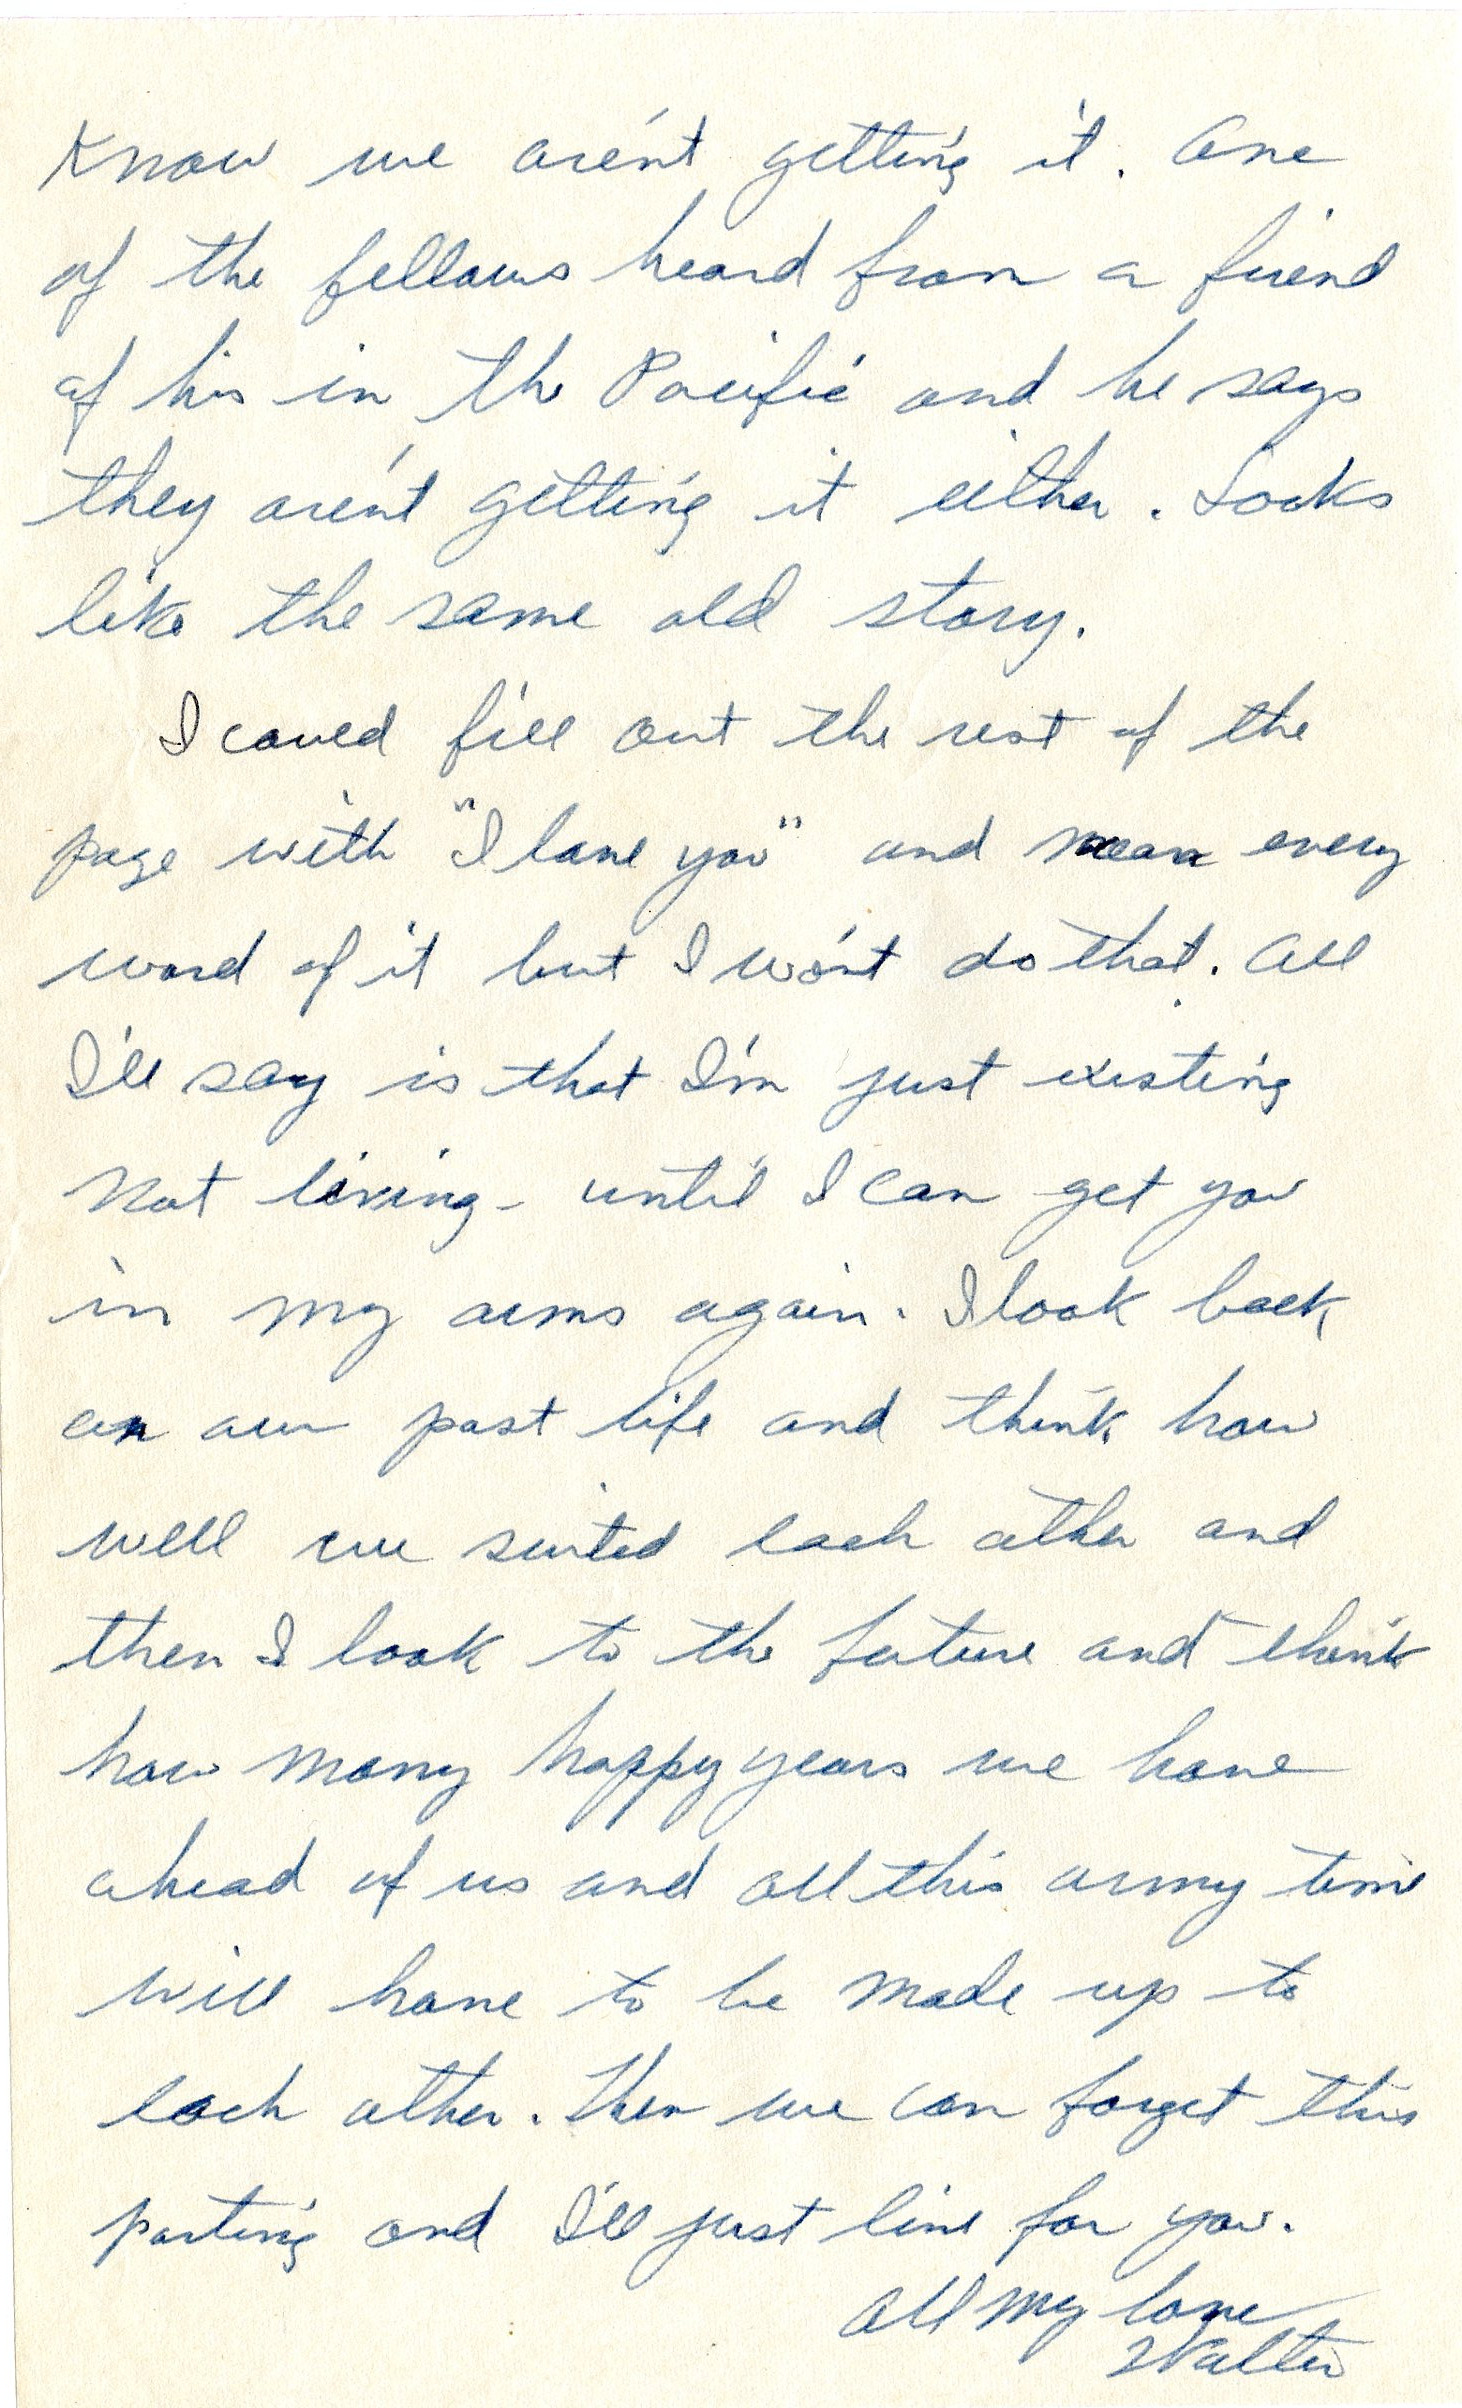 Know we aren't getting it. One
of the fellows heard from a friend
of his in the Pacific and he says
they aren't getting it either. Looks
like the same old story.
I could fill out the rest of the
page with "I love you" and mean every
word of it but I won't do that. All
I'll say is that I'm just existing
not living - until I can get you
in my arms again. I look back
on our past life and think how
well we suited each other and
then I look to the future and think
how many happy years we have
ahead of us and all this army time
will have to be made up to
each other. Then we can forget this
parting and I'll just live for you.
All my love
Walter